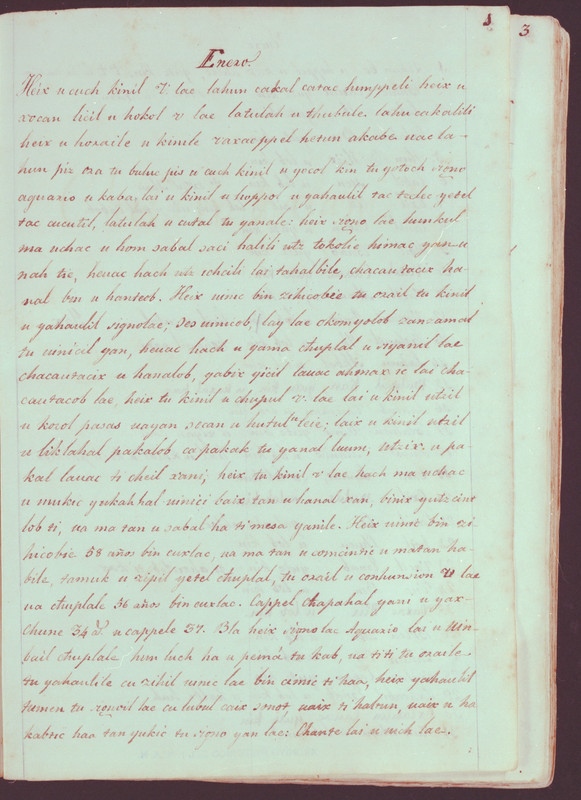 1
3
Enero.
Heix u cuch kinil V. lae lahun cakal catac humppeli heix u
xocan licil u hokol V lae latulah u thubule. lahu cakalili
heix u horaile u kinile xaxacppel hetun akabe uac la-
hun piz ora tu buluc pis u cuch kinil u yocol kin tu yotoch signo
aquario u kaba, lai u kinil u hoppol u yahaulil tac tzelec yetel
tac cucutil, latulah u cutal tu yanale: heix signo lae hunkul
ma uchac u hom sabal saci halili utz tokolic himac yan u
nah tie, heuac hach utz ichcili lai tahalbile, chacautacix ha-
nal bin u hanteob. Heix uinic bin zihicobie tu orail tu kinil
u yahaulil signolae; Dos uinicob, lay lae okomyolob
tu uinicil yan, heuac hach u yama chuplal u siyanil lae
chacautacix u hanalob, yabix yicil lauac ahmax ic lai cha-
cautacob lae, heix tu kinil u chupul V. lae lai u kinil utzil
u kozol pasas uayan secan u hutul u leie; laix u kinil utzil
u liklahal pakalob ca pakak tu yanal luum, utzix u pa-
kal lauac ti cheil xani; heix tu kinil V lae hach ma uchac
u mukic yukahhal uinici baix tan u hanal xan, binix yutzcint
lob ti, ua ma tan u sabal ha ti mesa yanile. Heix uinic bin zi-
hicobie 58 años bin cuxlac, ua ma tan u comcintic u matan ha-
bile, tamuk u zipil yetel chuplal, tu orail u conhunsion lae
ua chuplale 56 años bin cuxlac. Cappel chapahal yani u yax-
chune 34 a.s u cappele 37. Bla heix signo lac Aquario lai u Uin-
bail chuplale hun luch ha u pcmá tu kab, ua ti ti tu oraile
tu yahaulile cu zihil uinic lae bin cimic ti haa, heix yahaulil
tumen tu signoil lae cu lubul caix sonot, uaix ti halrun, uaix u ha
kabtic haa tan yukic tu signo yan lae: Chante lai u uich lae.